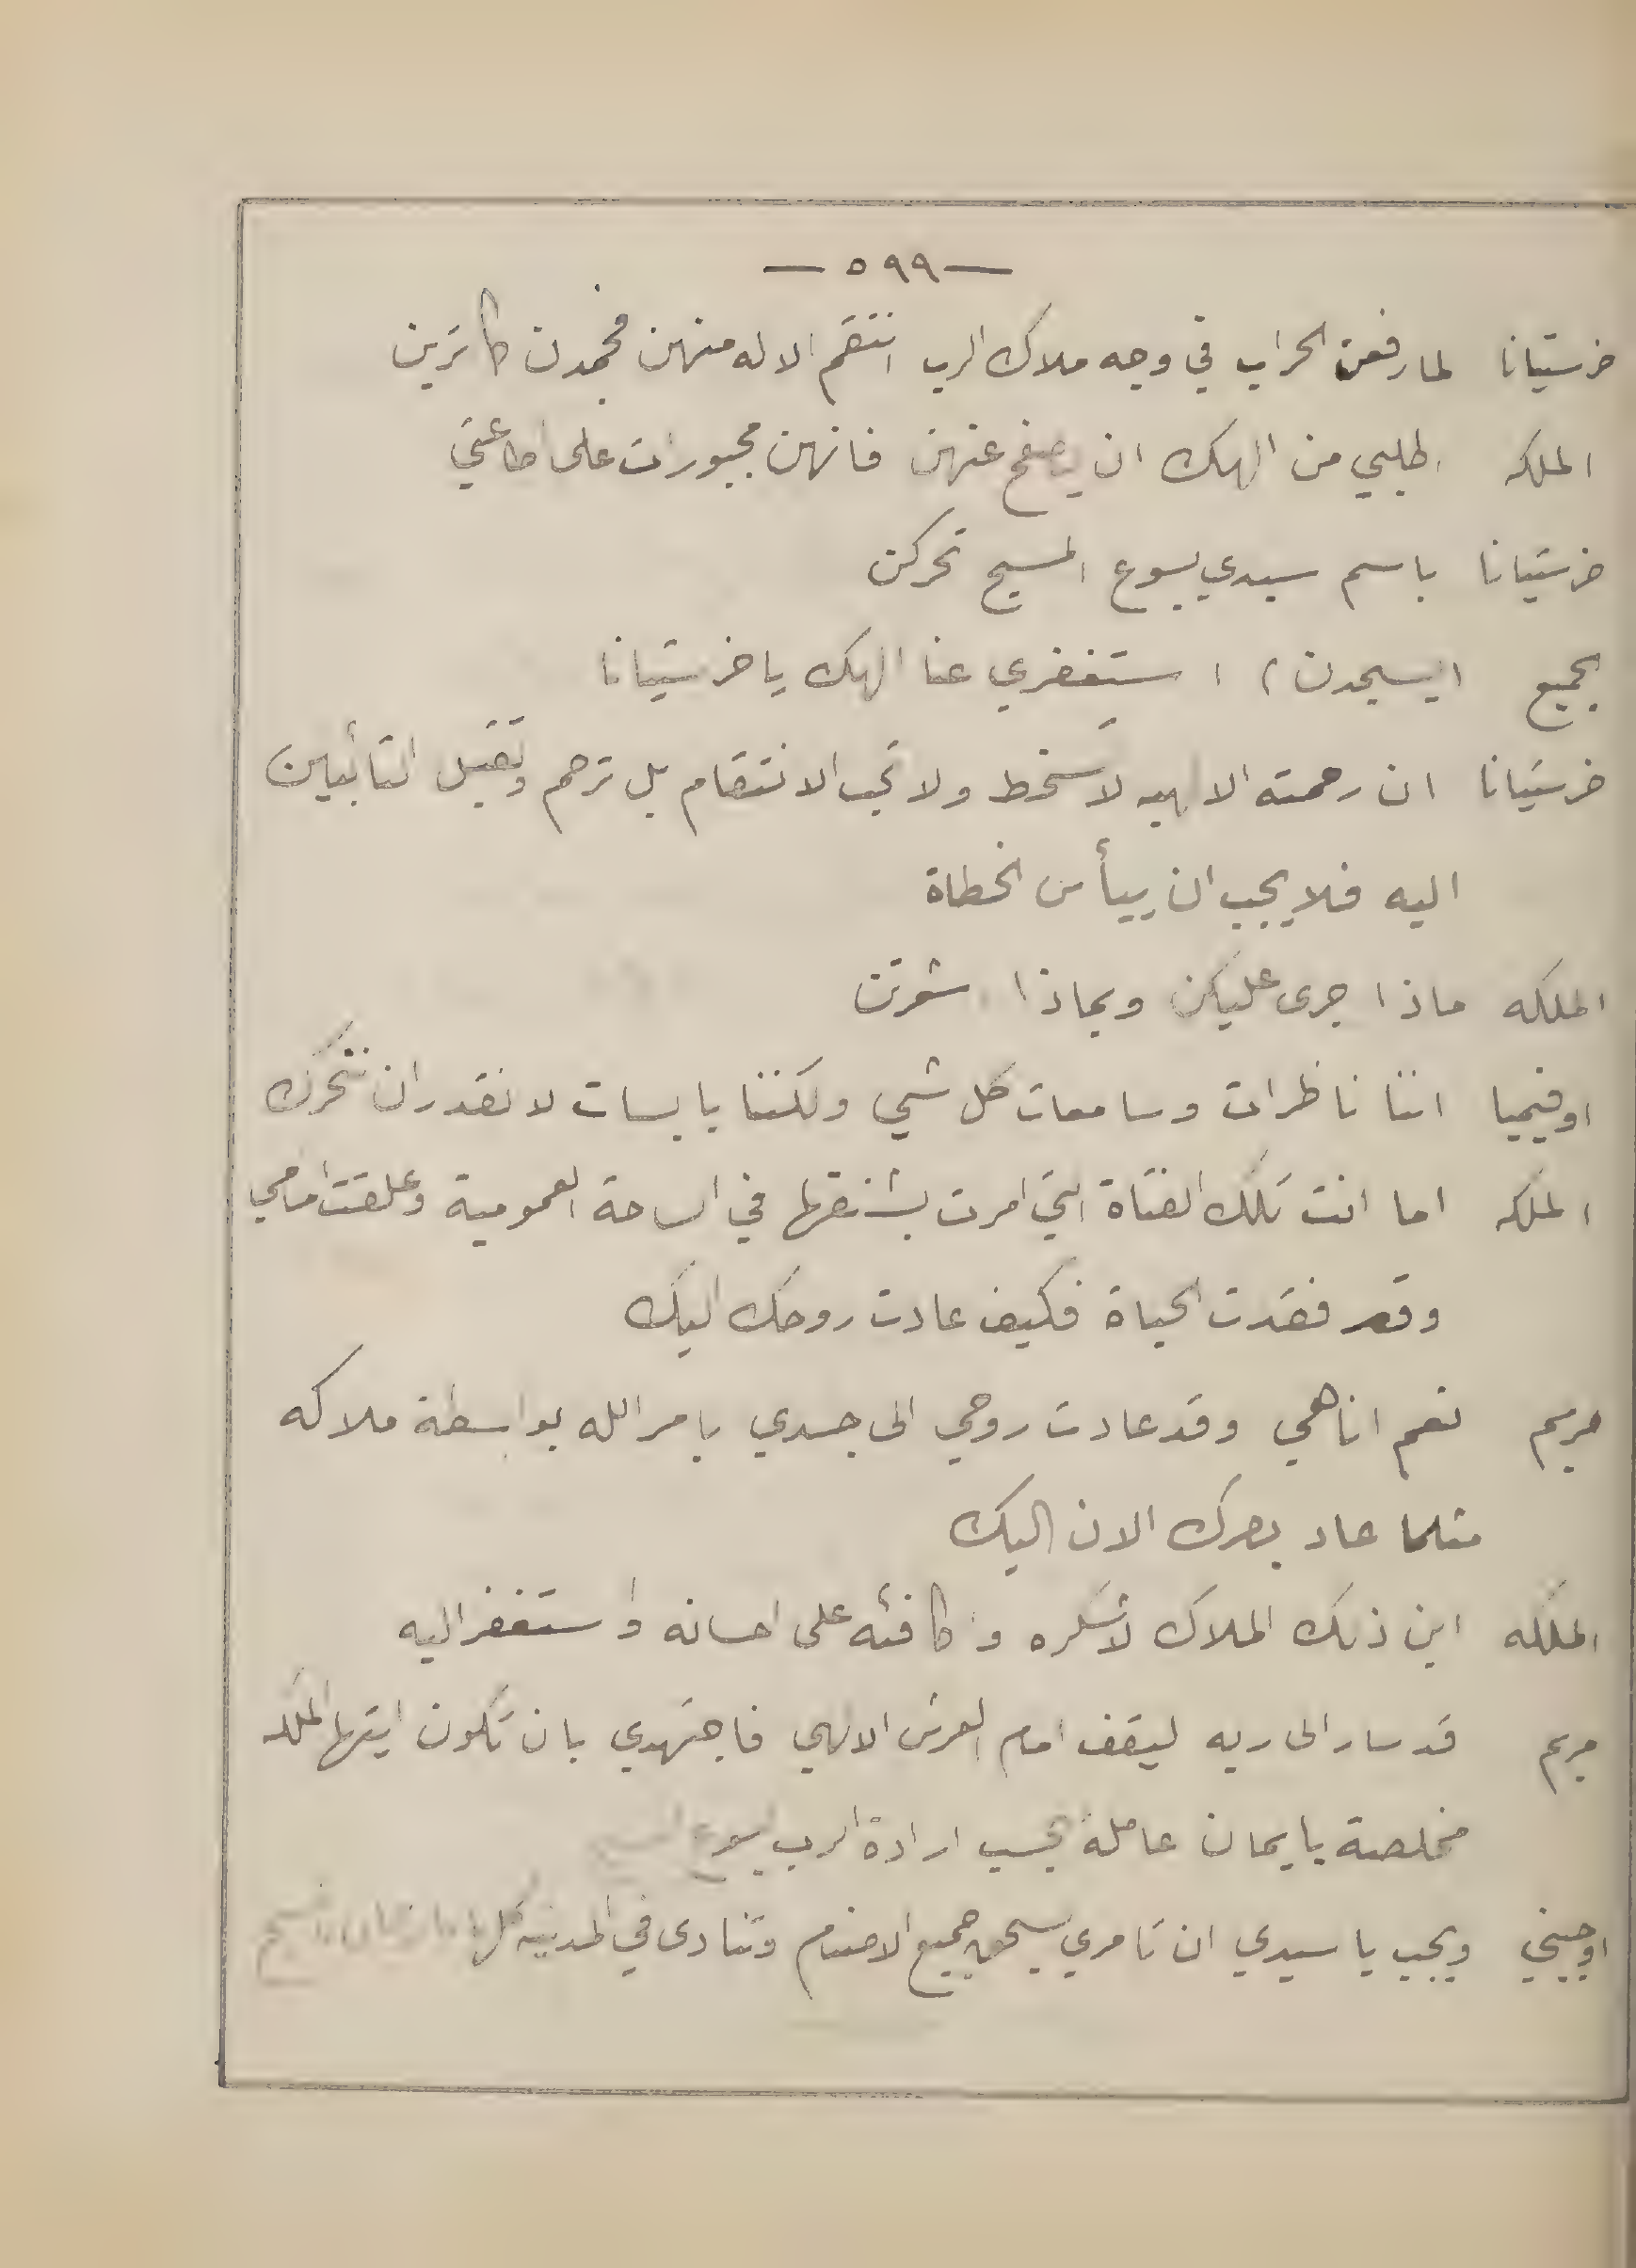 — ٥٩٩ —
خرستيانا لما رفعن الحراب في وجه ملاك الرب انتقم الاله منهن فجمدن كما ترين
الملكه اطلبي من الهك ان يصفح عنهن فانهن مجبورات على اطاعتي
خرستيانا باسم سيدي يسوع المسيح تحركن
الجميع (يسجدن) استغفري عنا الهك يا خرستيانا
خرستيانا ان رحمته الالهيه لا تسخط ولا تحب الانتقام بل ترحم وتقبل التائبين
اليه فلا يجب ان ييأس الخطاة
الملكه ماذا جرى عليكن وبماذا شعرتن
اوفيميا اننا ناظرات وسامعات كل شي ولكننا يابسات لا نقدر ان نتحرك
الملكه اما انت تلك الفتاة التي امرت بشنقها في الساحة العمومية وعلقت امامي
وقد فقدت الحياة فكيف عادت روحك اليك
مريم نعم انا هي وقد عادت روحي الى جسدي بامر الله بواسطة ملاكه
مثلما عاد بصرك الان اليك
الملكه اين ذلك الملاك لاشكره واكافئه على احسانه واستغفر اليه
مريم قد سار الى ربه ليقف امام العرش الالهي فاجتهدي بان تكون ايتها الملكه
مخلصة بايمان عاملة بحسب ارادة الرب يسوع المسيح
اوجيني ويجب يا سيدي ان تامري بسحق جميع الاصنام وتنادى في المدينه كلها